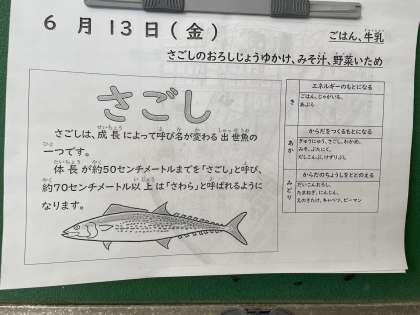 6 月 13日(金)
ごはん、牛乳
さごしのおろしじょうゆかけ、みそ汁、野菜いため
さごし
さごしは、成長によって呼び名が変わる出世魚の
一つです。
体長が約50センチメートルまでを「さごし」と呼び、
約70センチメートル以上は「さわら」と呼ばれるように
なります。
エネルギーのもとになる
き
ごはん、じゃがいも、
あぶら
からだをつくるもとになる
あか
ぎゅうにゅう、さごし、わかめ、
みそ、ぶたにく、
だしこんぶ、けずりぶし
からだのちょうしをととのえる
みどり
だいこんおろし、
たまねぎ、にんじん、
えのきたけ、キャベツ、ピーマン